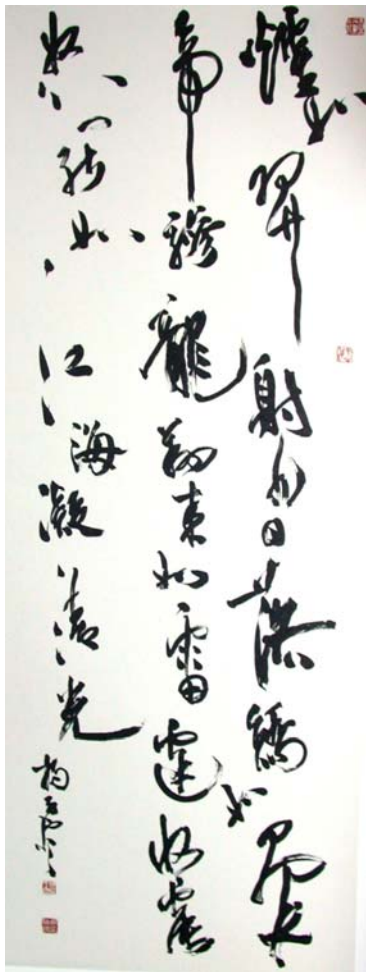 㸌如羿射九日落矯如群
帝驂龍翔來如雷霆收震
怒罷如江海凝清光